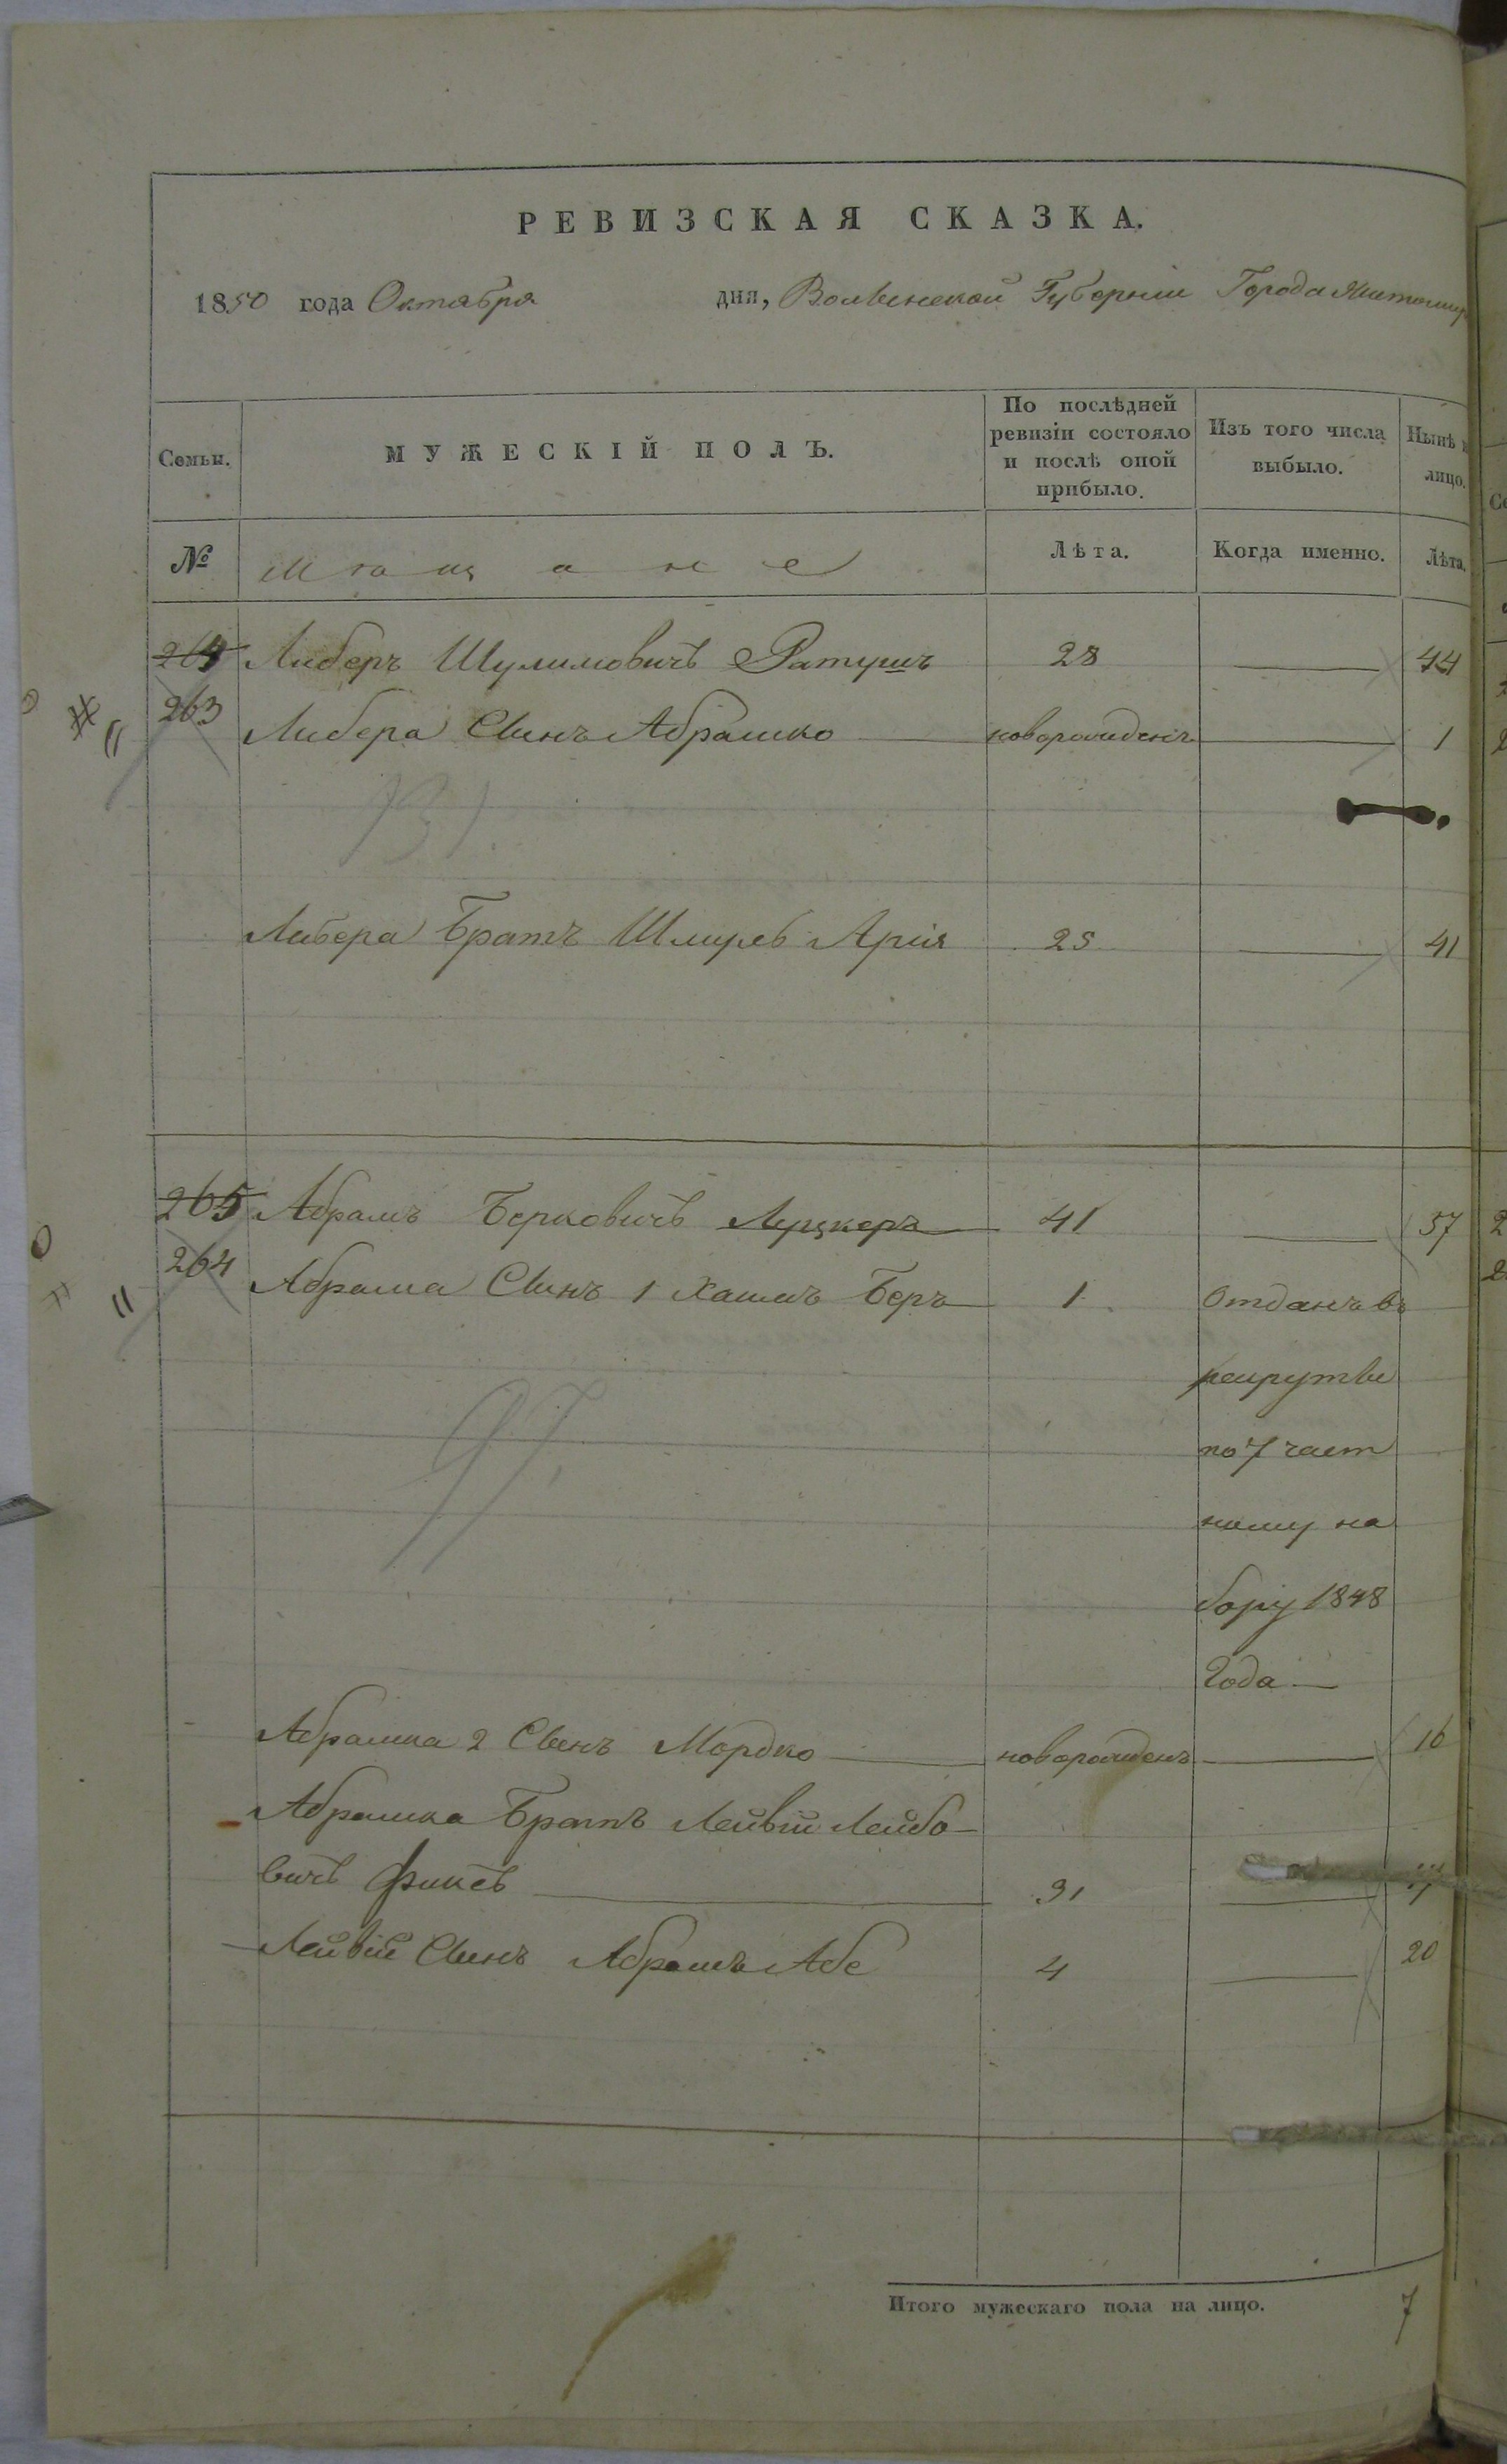 РЕВИЗСКАЯ СКАЗКА.
1850 года Октября дня, Волынской Губерніи Города Житомир
Семьи. МУЖЕСКІЙ ПОЛЪ. По послѣдней ревизіи состояло и послѣ оной прибыло. Изъ того числа выбыло. Нынѣ н лицо.
№ Мѣщане Лѣта. Когда именно. Лѣта.
264 Либеръ Шулимовичъ Ратушъ 28 — 44
263 Либера Сынъ Абрашко новорожденъ — 1
131.
Либера Братъ Шмуль Арія 25 — 41
265 Абрамъ Берковичъ Луцкеръ 41 — 57
264 Абрама Сынъ 1 Хаимъ Беръ 1 Отданъ въ
рекруты
по 7 част
ному на
бору 1848
Года —
Абрамка 2 Сынъ Мордко — новорожденъ — 16
Абрамка Братъ Лейвій Лейбо-
вичъ Финсъ — 31 —
Лейвія Сынъ Абрамъ Абе 4 — 20
Итого мужескаго пола на лицо. 7